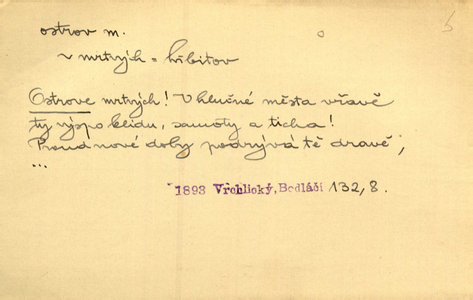 ostrov m.
v mrtvých = hřbitov
Ostrove mrtvých! V hlučné města vřavě
ty výspo klidu, samoty a ticha!
Proud nové doby podrývá tě dravě,
...
1893 Vrchlický, Bodláčí 132, 8.